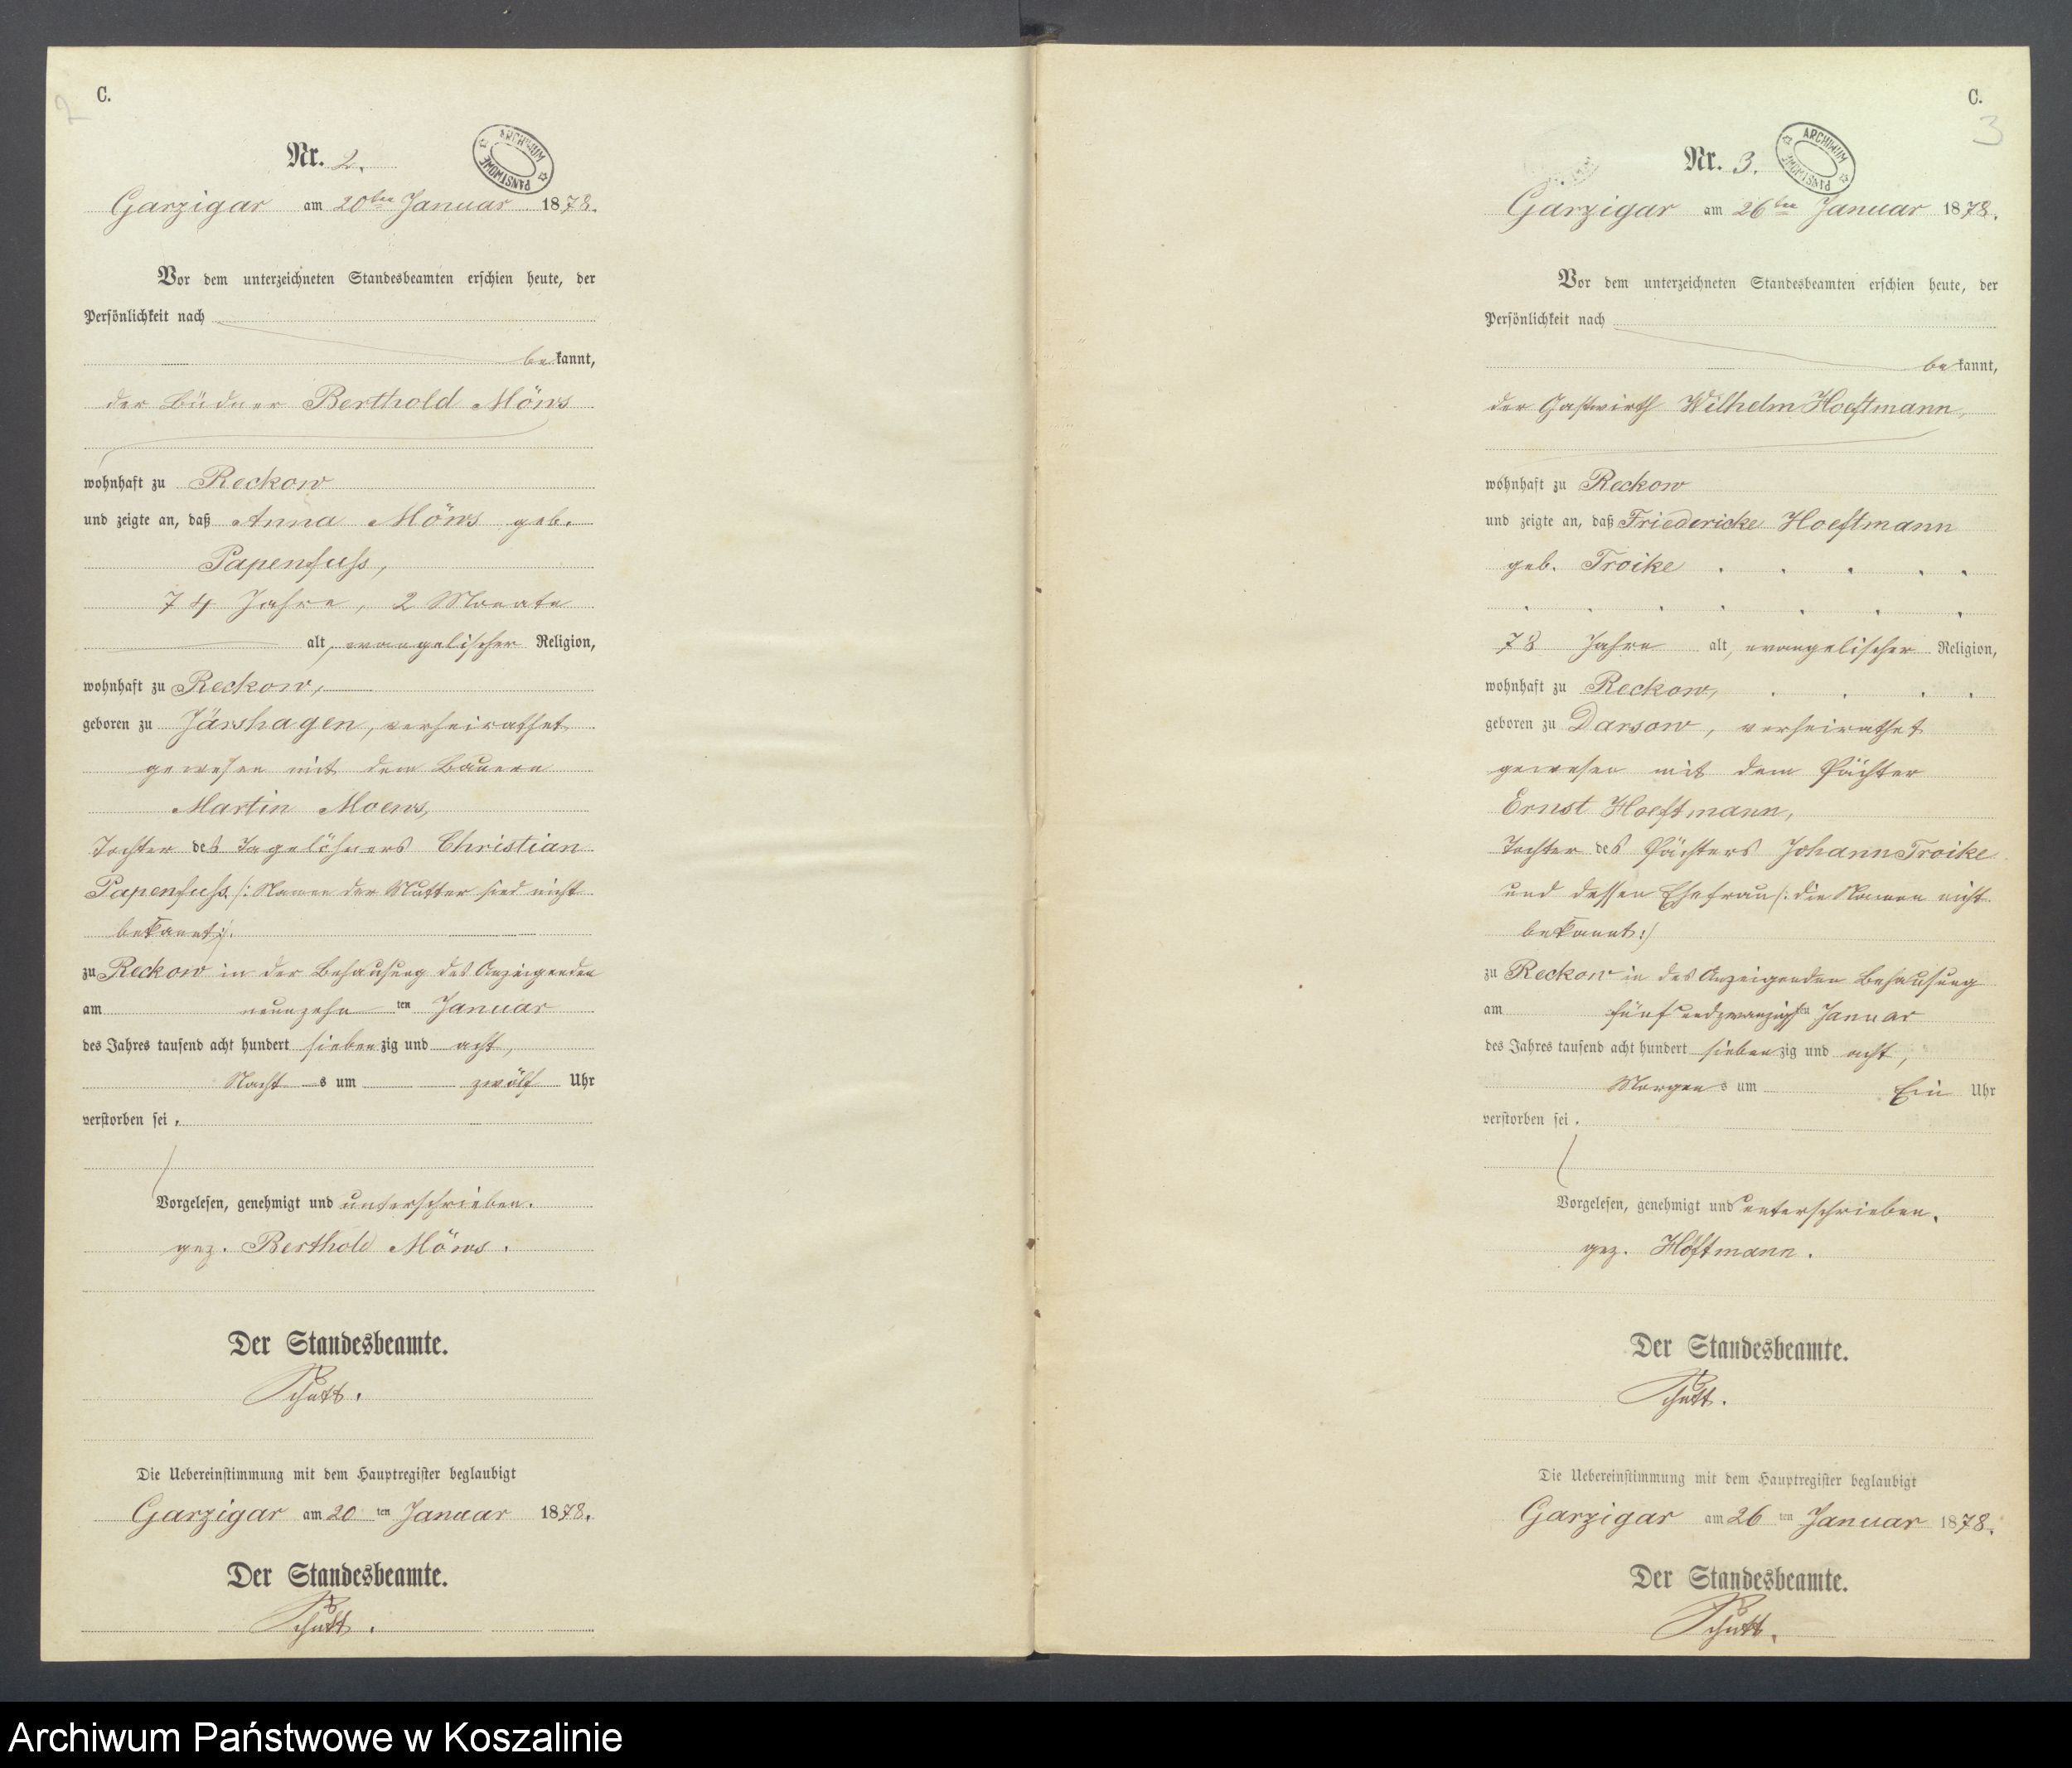 C.
2
Nr. 2.
ARCHIWUM PAŃSTWOWE
Garzigar am 20ten Januar 1878.
Vor dem unterzeichneten Standesbeamten erschien heute, der
Persönlichkeit nach
bekannt,
der Büdner Berthold Möws
wohnhaft zu Reckow
und zeigte an, daß Anna Möws geb.
Papenfuss,
74 Jahre, 2 Monate
alt, evangelischer Religion,
wohnhaft zu Reckow,
geboren zu Järshagen, verheirathet
gewesen mit dem Bauern
Martin Moews,
Tochter des Tagelöhners Christian
Papenfuss /: Namen der Mutter sind nicht
bekannt :/.
zu Reckow in der Behausung des Anzeigenden
am neunzehn ten Januar
des Jahres tausend acht hundert siebenzig und acht,
Nachts um zwölf Uhr
verstorben sei.
Vorgelesen, genehmigt und unterschrieben.
gez. Berthold Möws.
Der Standesbeamte.
Schütt.
Die Uebereinstimmung mit dem Hauptregister beglaubigt
Garzigar am 20 ten Januar 1878.
Der Standesbeamte.
Schütt.
C.
3
Nr. 3.
ARCHIWUM PAŃSTWOWE
Garzigar am 26ten Januar 1878.
Vor dem unterzeichneten Standesbeamten erschien heute, der
Persönlichkeit nach
bekannt,
der Gastwirth Wilhelm Hoeftmann,
wohnhaft zu Reckow
und zeigte an, daß Friedericke Hoeftmann
geb. Troike
78 Jahre alt, evangelischer Religion,
wohnhaft zu Reckow,
geboren zu Darsow, verheirathet
gewesen mit dem Pächter
Ernst Hoeftmann,
Tochter des Pächters Johann Troike
und dessen Ehefrau /: die Namen nicht
bekannt :/
zu Reckow in des Anzeigenden Behausung
am fünf und zwanzigsten Januar
des Jahres tausend acht hundert siebenzig und acht,
Morgens um Ein Uhr
verstorben sei.
Vorgelesen, genehmigt und unterschrieben.
gez. Höftmann.
Der Standesbeamte.
Schütt.
Die Uebereinstimmung mit dem Hauptregister beglaubigt
Garzigar am 26 ten Januar 1878.
Der Standesbeamte.
Schütt.
Archiwum Państwowe w Koszalinie